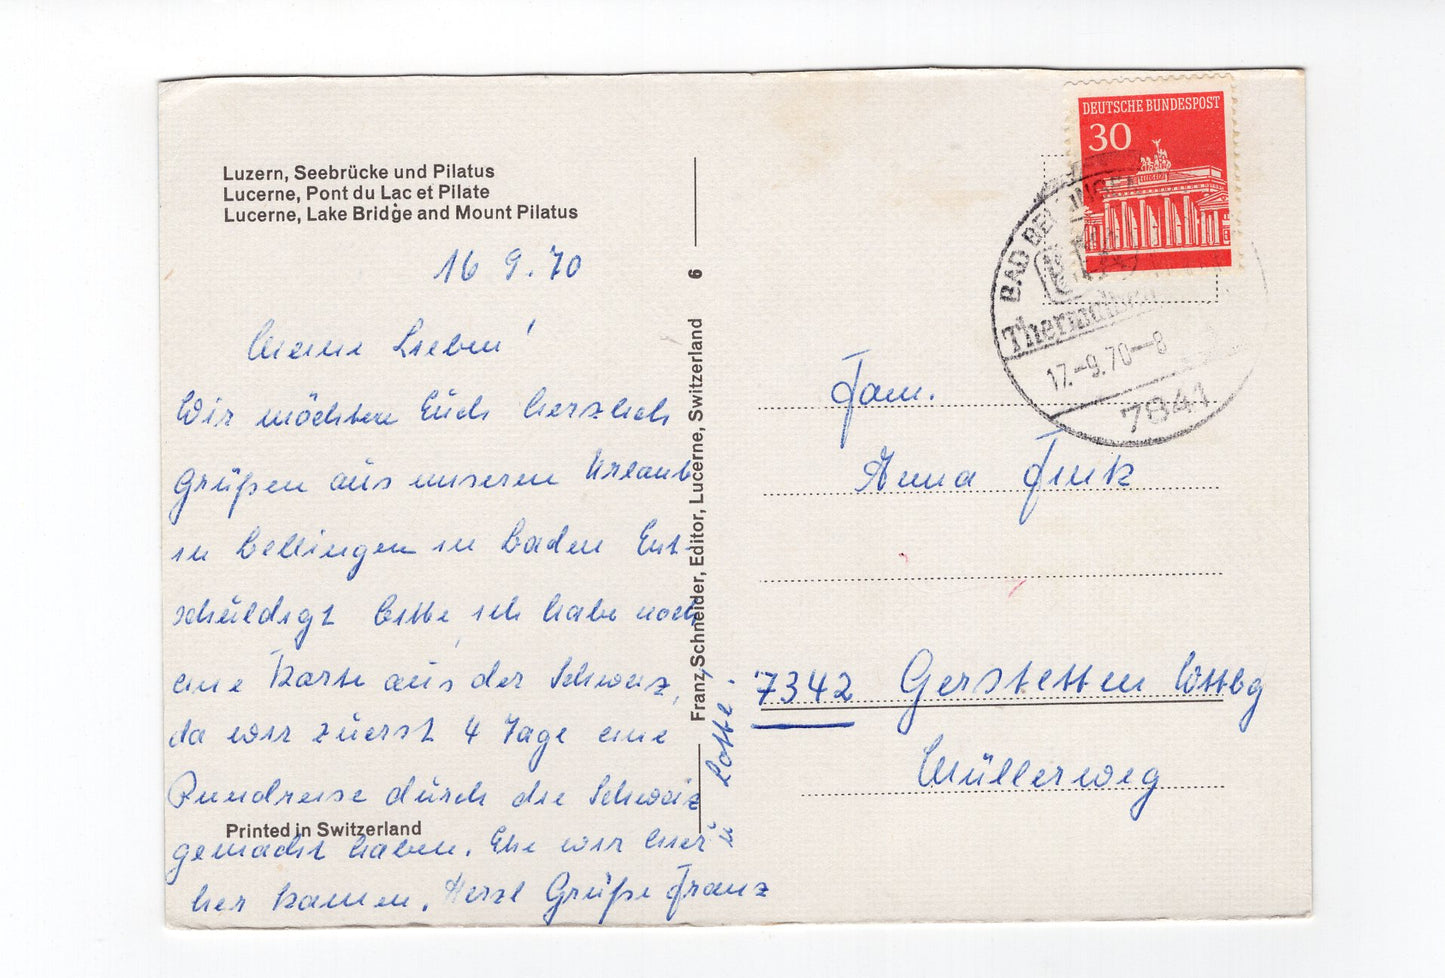 Luzern, Seebrücke und Pilatus
Lucerne, Pont du Lac et Pilate
Lucerne, Lake Bridge and Mount Pilatus
16 9.70
Meine Lieben!
Wir möchten Euch herzlich
Grüßen aus unseren Urlaub
in Bellingen in Baden Ent-
schuldigt bitte ich habe noch
eine Karte aus der Schweiz,
da wir zuerst 4 Tage eine
Rundreise durch die Schweiz
gemacht haben. Ehe wir hier
her kamen. Herzl Grüße Franz
u Lotte.
Printed in Switzerland
Franz Schneider, Editor, Lucerne, Switzerland 6
DEUTSCHE BUNDESPOST
30
BAD BELLINGEN
17.-9.70-8
7841
Fam.
Anna Fink
7342 Gerstetten Wttbg
Müllerweg